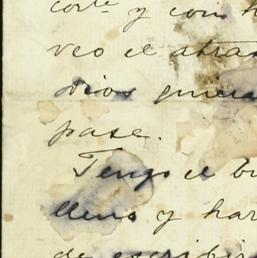 corte y con
veo el atras
Dios quiera
pase.
Tengo el bu
lleno y har
de escribir